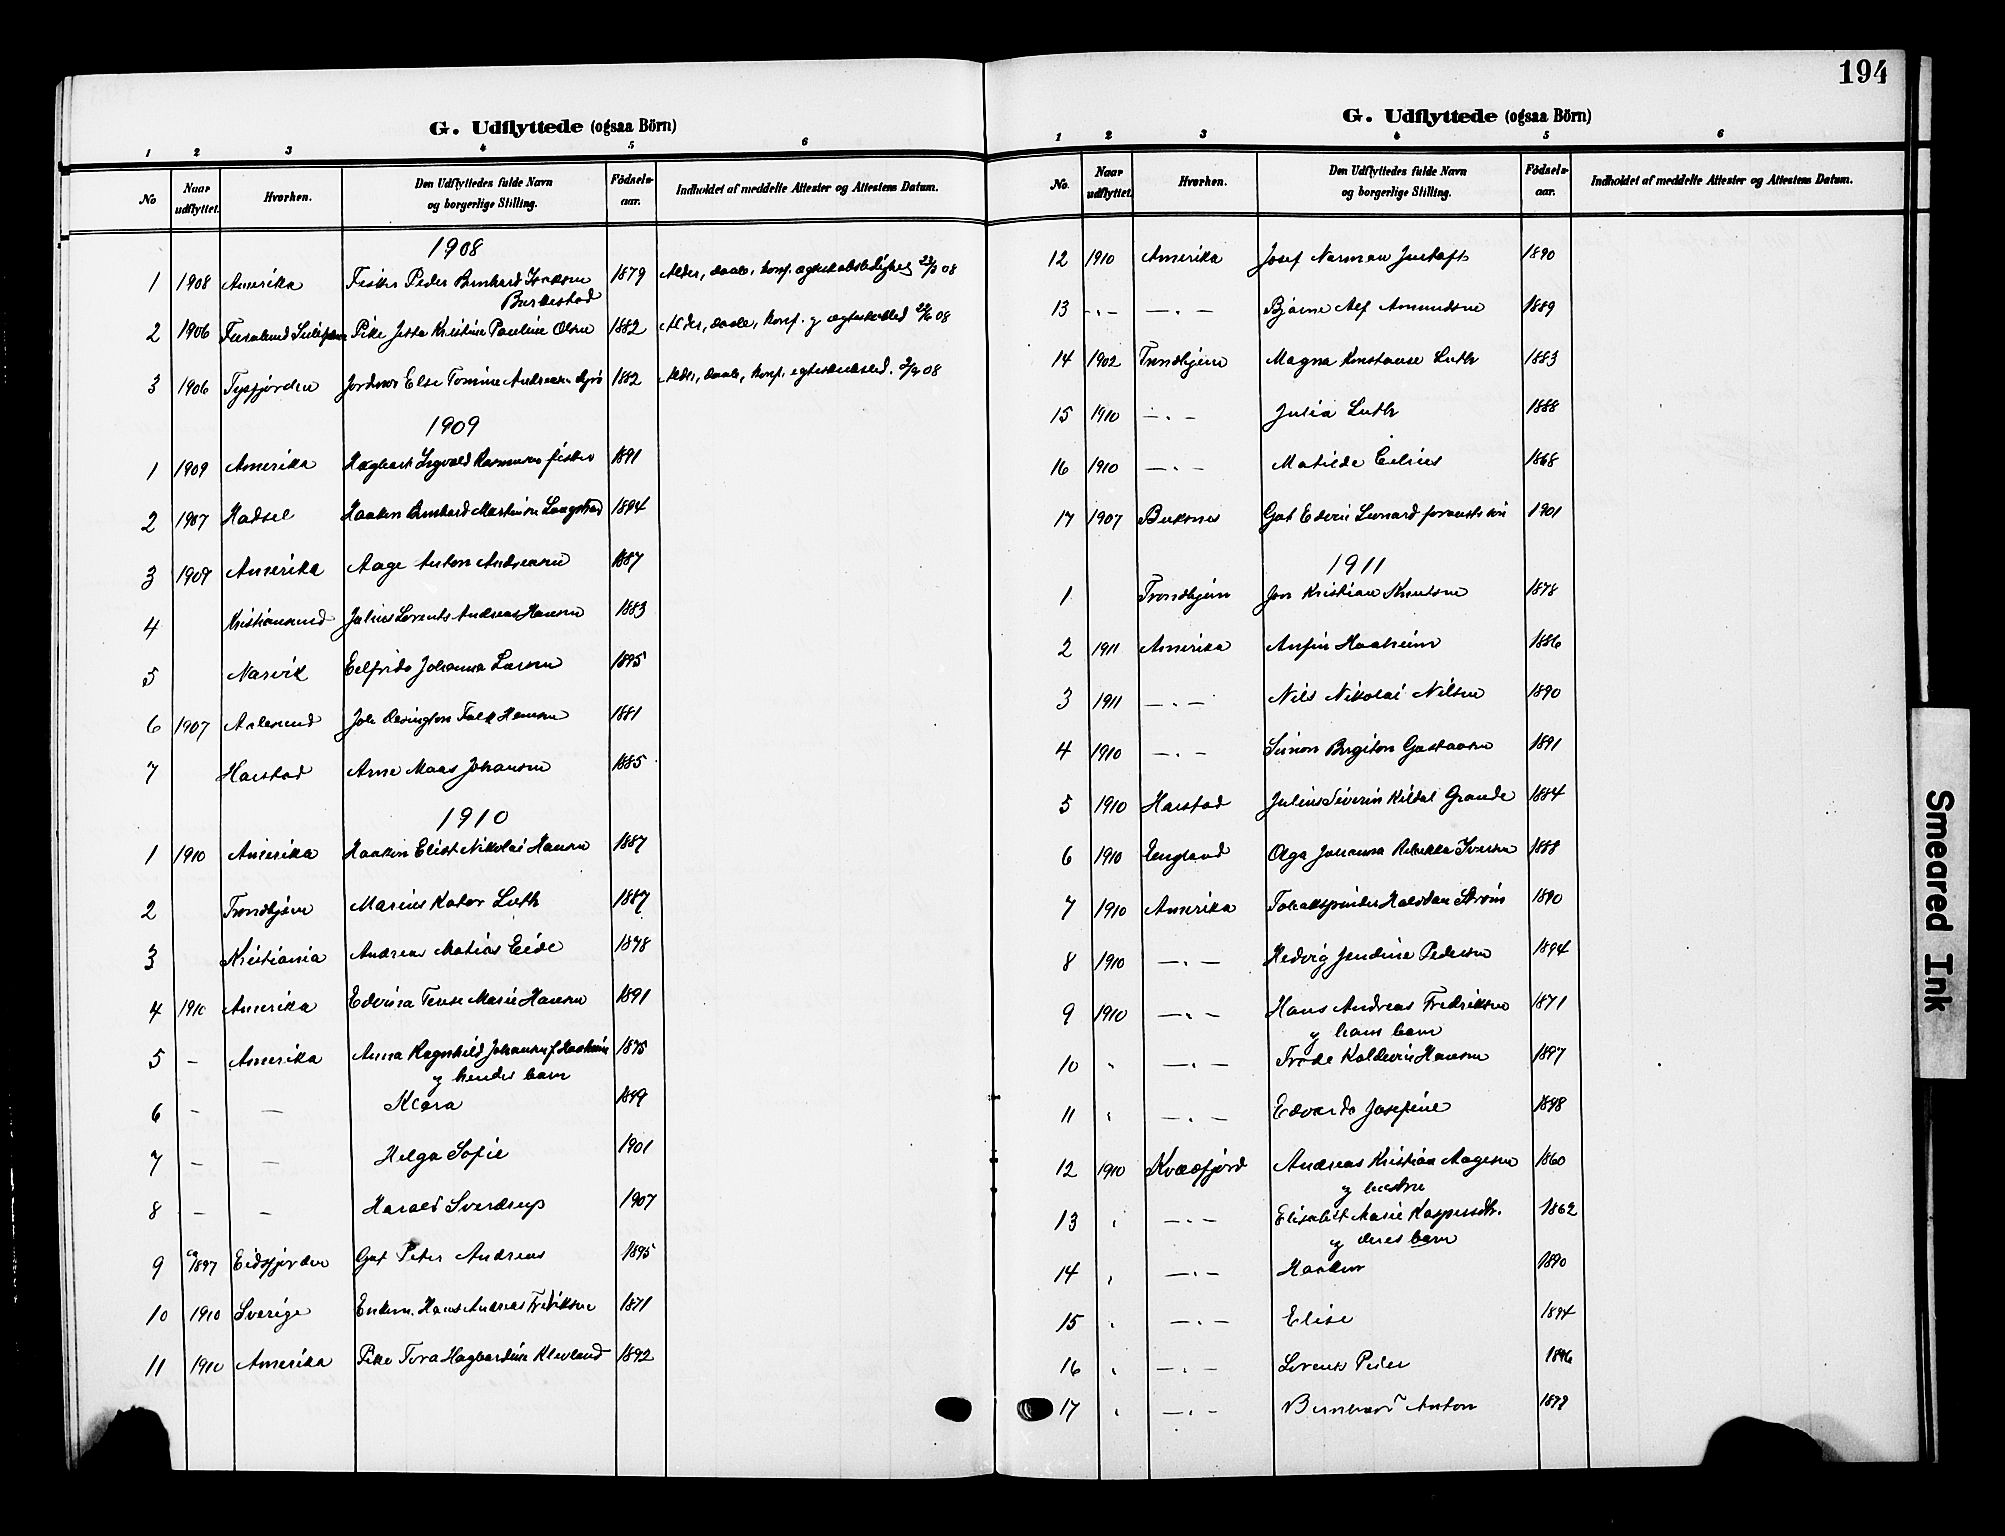 194
G. Udflyttede (ogsaa Börn)
1 2 3 4 5 6
No Naar udflyttet. Hvorhen. Den Udflyttedes fulde Navn og borgerlige Stilling. Födselsaar. Indholdet af meddelte Attester og Attestens Datum.
1908
1 1908 Amerika Fisker Peder Bernhard Isaksen 1879 Alder, daab, konf. 08
Burkestad
2 1906 Pike Kristine Pauline Olsen 1882 Alder, daab, konf. og 08
3 1906 Tysfjorden Jordmor Else Tomine Andreasen 1882 Alder, daab, konf. 08
1909
1 1909 Amerika Hagbart Ingvald Rasmussen fisker 1891
2 1907 Hadsel Haakon Bernhard Martinson 1894
3 1909 Amerika Aage Anton Andreassen 1887
4 Kristiansund Julius Lorents Andreas Hansen 1883
5 Narvik Elfrida Johanna Larsen 1895
6 1907 Aalesund Falk Hansen 1881
7 Harstad Arne Maas Johansen 1885
1910
1 1910 Amerika Haakon Elist Nikolai Hansen 1887
2 Trondhjem Marius Kator Luth 1887
3 Kristiania Andreas Matias Eide 1878
4 1910 Amerika Edvina Terese Marie Hansen 1891
5 – Amerika Anna Ragnhild Johansen f. Haaheim 1875
og hendes barn
6 – — Klara 1899
7 – — Helga Sofie 1901
8 – — Harald Sverdrup 1907
9 1897 Eidsfjorden Gat Peter Andreas 1895
10 1910 Sverige Enkem. Hans Andreas Fredriksen 1871
11 1910 Amerika Pike Tora Hagbardine Klevland 1892
G. Udflyttede (ogsaa Börn)
1 2 3 4 5 6
No. Naar udflyttet. Hvorhen. Den Udflyttedes fulde Navn og borgerlige Stilling. Födselsaar. Indholdet af meddelte Attester og Attestens Datum.
12 1910 Amerika Josef Norman 1890
13 –„– —„— Bjarne Alf Amundsen 1889
14 1902 Trondhjem Magna Konstanse Luth 1883
15 1910 —„— Julia Luth 1888
16 1910 —„— Matilde 1868
17 1907 Buksnes Gat Edvin Leonard 1901
1911
1 Trondhjem Jon Kristian Knutsen 1878
2 1911 Amerika Anfin Haaheim 1886
3 1911 —„— Nils Nikolai Nilsen 1890
4 1910 —„— Simon Birgiton Gustavsen 1891
5 1910 Harstad Julius Severin Kildal Grande 1884
6 1910 England Olga Johanna Rebekka Iversen 1888
7 1910 Amerika Tobakspinder Halvdan Strøm 1890
8 1910 —„— Hedvig Jendine Pedersen 1894
9 1910 —„— Hans Andreas Fredriksen 1871
og hans barn
10 „ —„— Frode Kaldevin Hansen 1897
11 „ —„— Edvarda Josefine 1898
12 1910 Kvæfjord Andreas Kristian Aagesen 1860
og hustru
13 „ —„— Elisabet Marie Kaspersdtr. 1862
og deres barn
14 „ —„— Haakon 1890
15 „ —„— Elise 1894
16 „ —„— Lorents Peder 1896
17 „ —„— Bernhard Anton 1899
Smeared Ink